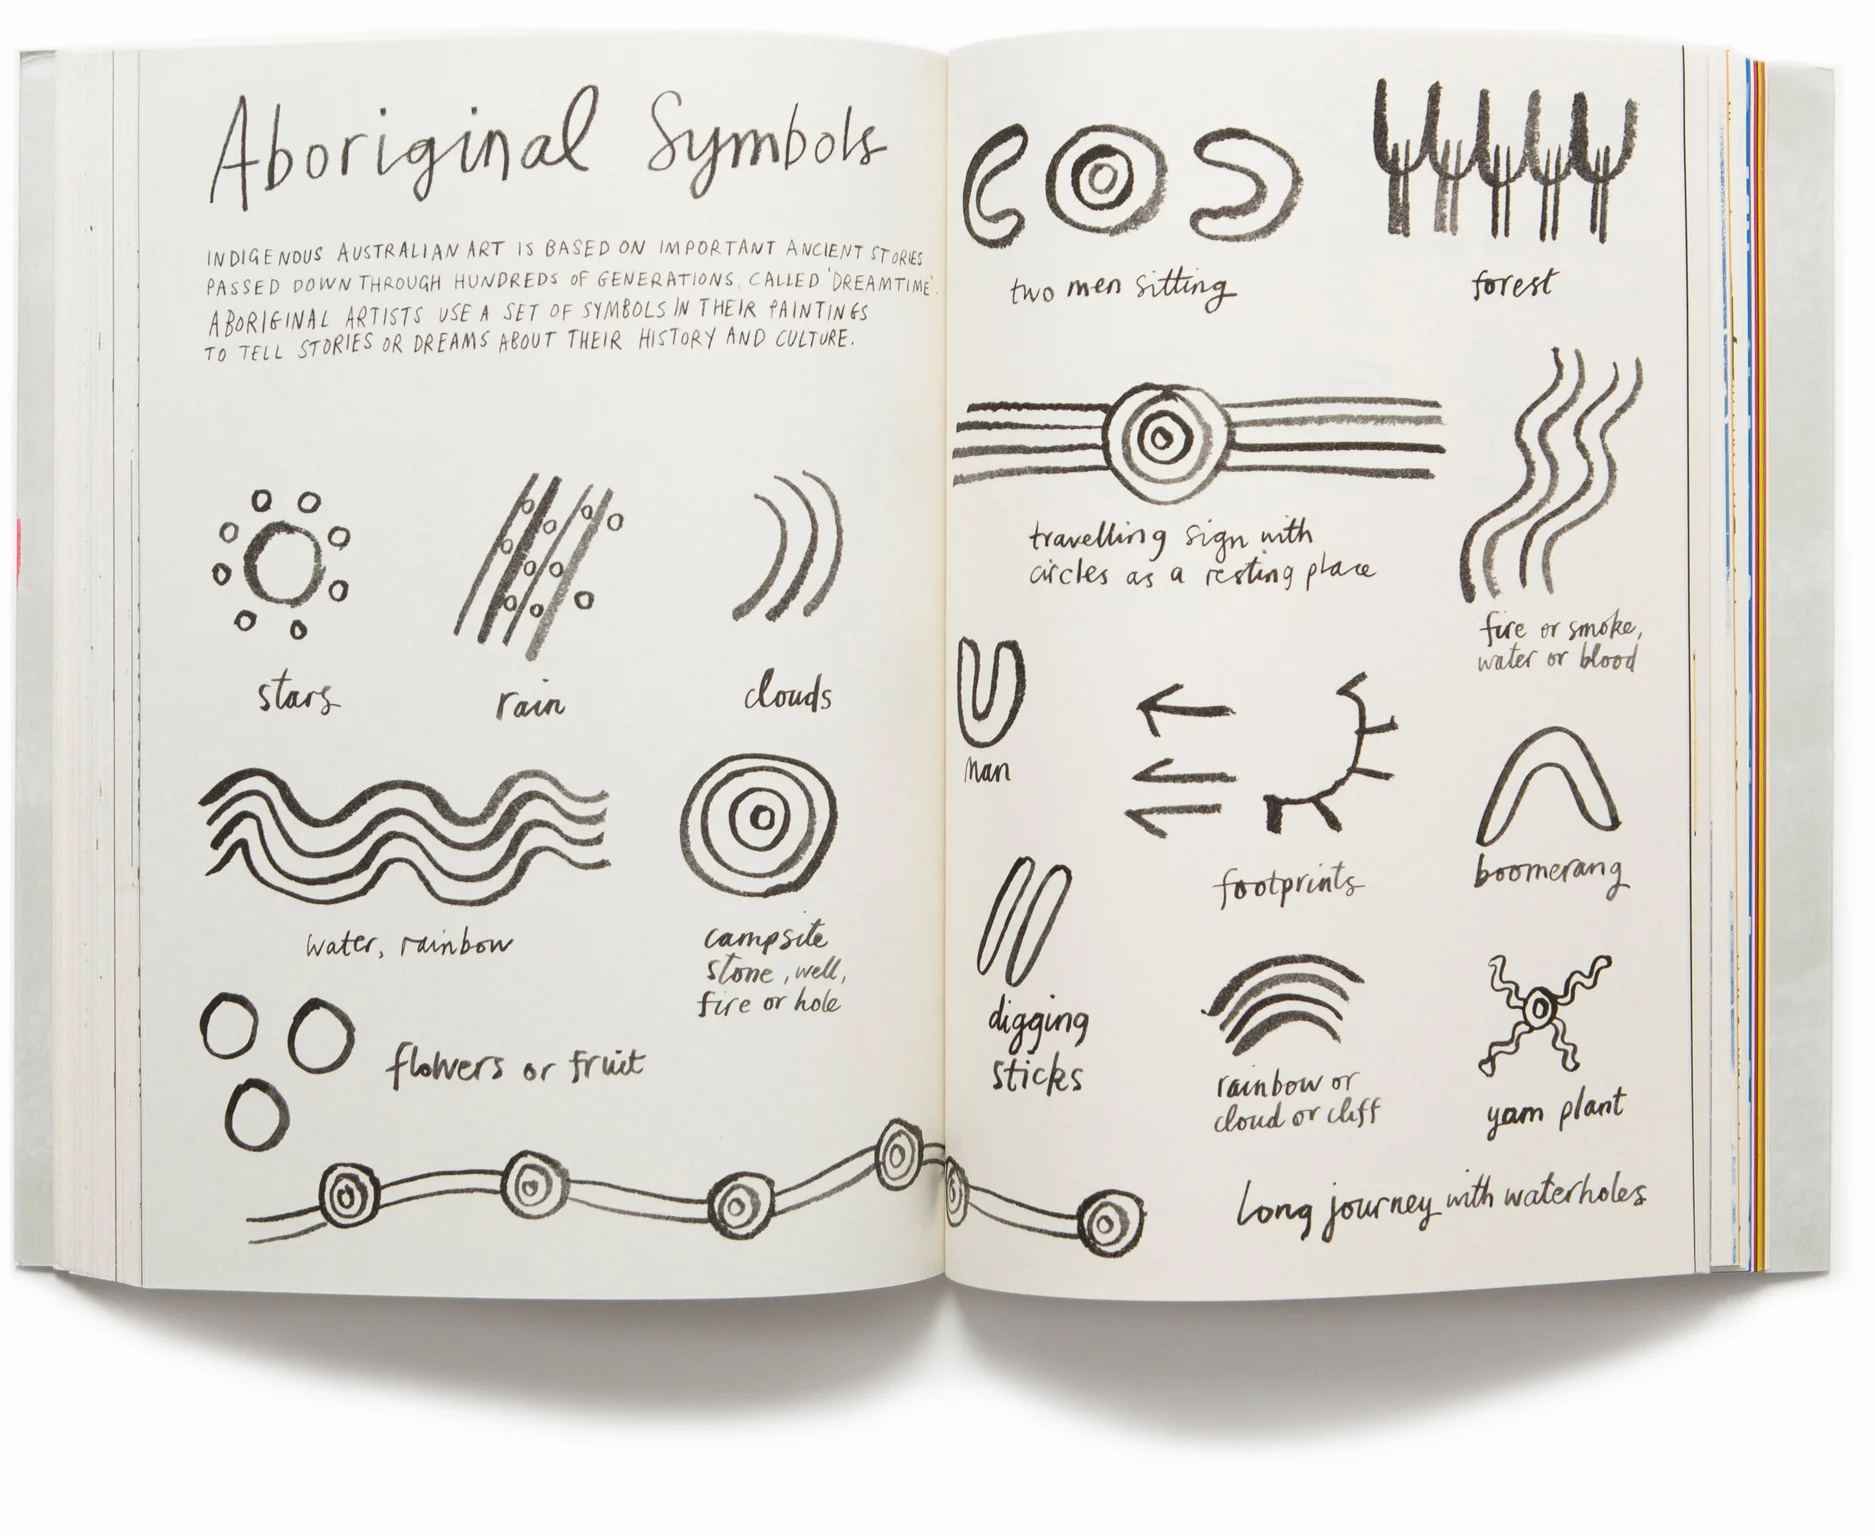 Aboriginal Symbols
INDIGENOUS AUSTRALIAN ART IS BASED ON IMPORTANT ANCIENT STORIES
PASSED DOWN THROUGH HUNDREDS OF GENERATIONS, CALLED 'DREAMTIME'.
ABORIGINAL ARTISTS USE A SET OF SYMBOLS IN THEIR PAINTINGS
TO TELL STORIES OR DREAMS ABOUT THEIR HISTORY AND CULTURE.
stars
rain
clouds
water, rainbow
campsite
stone, well,
fire or hole
flowers or fruit
two men sitting
forest
travelling sign with
circles as a resting place
fire or smoke,
water or blood
man
footprints
boomerang
digging
sticks
rainbow or
cloud or cliff
yam plant
Long journey with waterholes